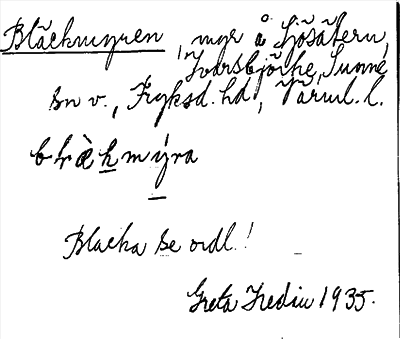 Bläckmyren, myr å Sjösätern,
Ivarsbjörke, Sunne
sn v., Fryksd. hd, Värml. l.
blæ̀kmýra
Blacka se ordl.!
Greta Hedin 1935.